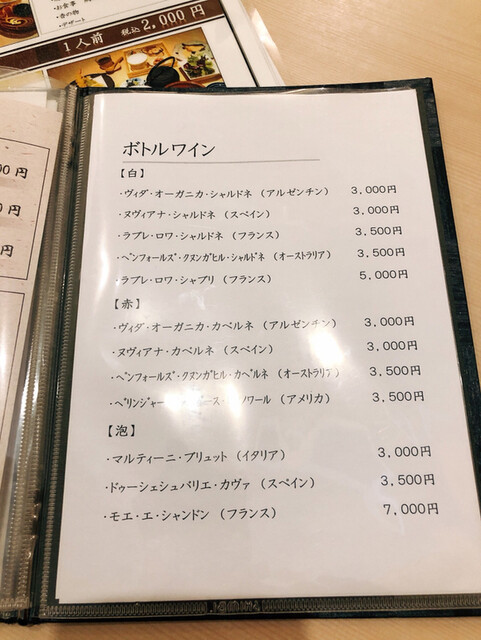 ・お食事
・香の物
・デザート
1人前 税込 2,000円
00円
0円
円
ボトルワイン
【白】
・ヴィダ・オーガニカ・シャルドネ（アルゼンチン） 3,000円
・ヌヴィアナ・シャルドネ（スペイン） 3,000円
・ラブレ・ロワ・シャルドネ（フランス） 3,500円
・ペンフォールズ・クヌンガヒル・シャルドネ（オーストラリア） 3,500円
・ラブレ・ロワ・シャブリ（フランス） 5,000円
【赤】
・ヴィダ・オーガニカ・カベルネ（アルゼンチン） 3,000円
・ヌヴィアナ・カベルネ（スペイン） 3,000円
・ペンフォールズ・クヌンガヒル・カベルネ（オーストラリア） 3,500円
・ベリンジャー ノワール（アメリカ） 3,500円
【泡】
・マルティーニ・ブリュット（イタリア） 3,000円
・ドゥーシェシュバリエ・カヴァ（スペイン） 3,500円
・モエ・エ・シャンドン（フランス） 7,000円